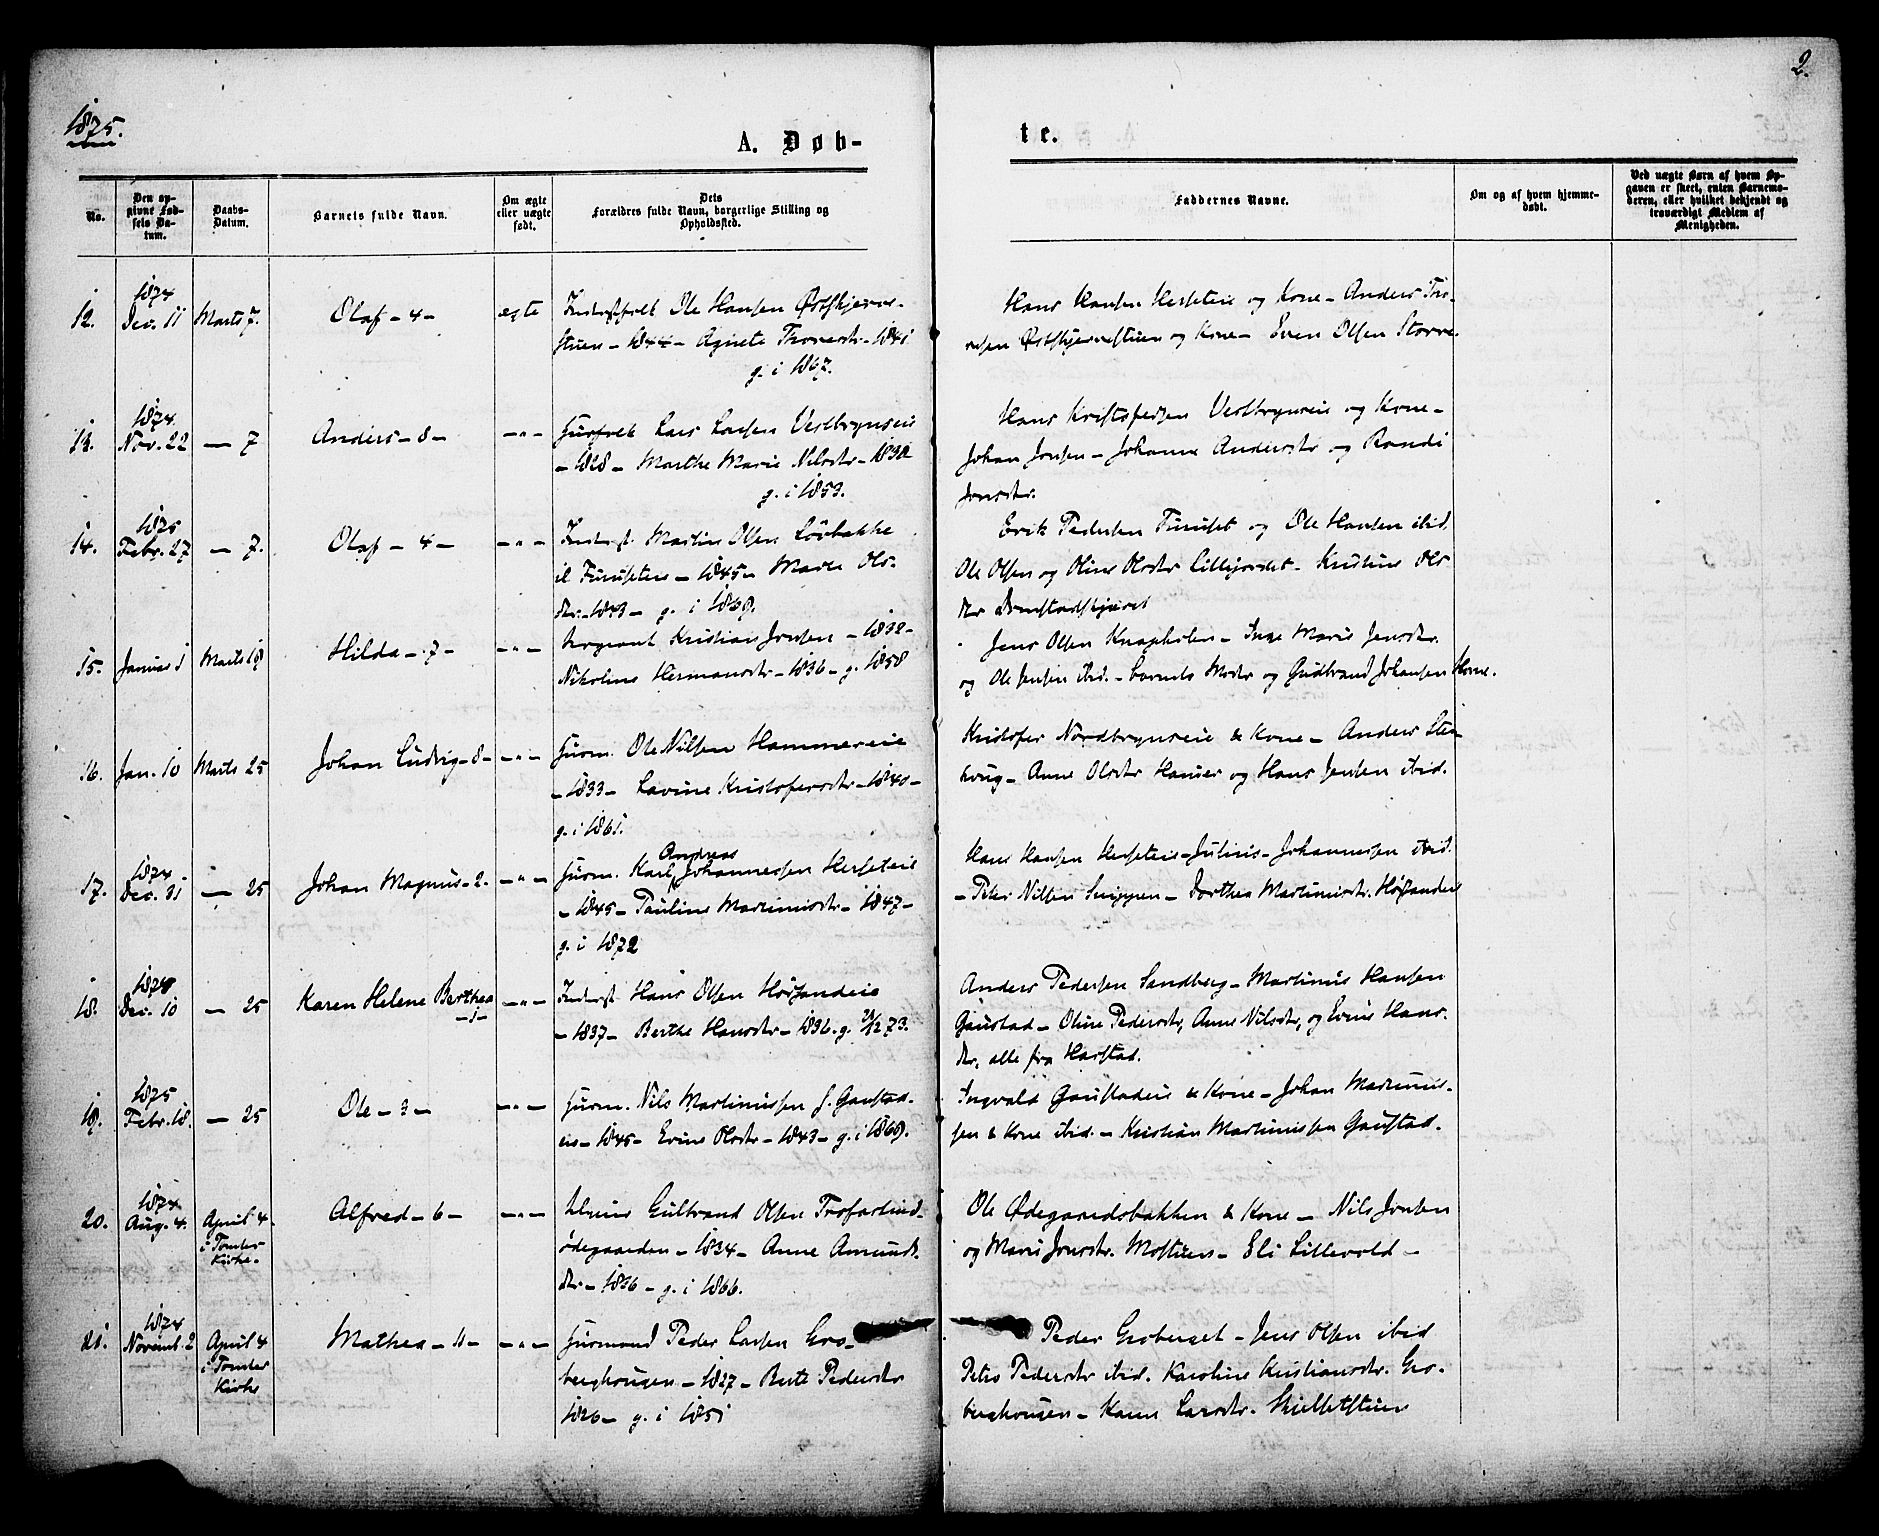 2.
1875.
A. Døb-
te.
No.
Den op-
givne Fød-
sels Da-
tum.
Daabs-
Datum.
Barnets fulde Navn.
Om ægte
eller uægte
født.
Dets
Forældres fulde Navn, borgerlige Stilling og
Opholdssted.
Faddernes Navne.
Om og af hvem hjemme-
døbt.
Ved uægte Børn af hvem Op-
gaven er skeet, enten Barnemo-
deren, eller hvilket bekjendt og
troværdigt Medlem af
Menigheden.
12.
1874
Dec. 11
Marts 7.
Olaf - 4 -
ægte
Ole Hansen
- 1844 - Agnete Thorersdtr - 1841
g. i 1867.
Hans Hansen Hersæteie og Kone - Anders
og Kone - Even Olsen
13.
1874
Nov. 22
— 7
Anders - 8 -
— " —
Lars Larsen Vestbyneie
- 1828 - Marthe Marie Nilsdtr - 1832
g. i 1853.
Hans Kristofersen Vestbyneie og Kone -
Johan Jensen - Johanne Andersdtr og Randi
14.
1875
Febr. 27
— 7.
Olaf - 4 -
— " —
Inderst. Martin Olsen Løvbakke
- 1845 - Marte Ols-
dtr. - 1843 - g. i 1869.
Erik Pedersen Furuset og Ole Hansen ibid.
Ole Olsen og Oline Olsdtr Lillejordet - Kristine Ols
dtr
15.
Januar 1
Marts 19
Hilda - 7 -
— " —
Sergeant Kristian Jensen - 1832 -
Nikoline Hermansdtr - 1836 - g. 1858
Jens Olsen Knapholen - Inge Marie Jensdtr.
og Ole Jensen ibid. - barnets Moder og Gudbrand Johansen Horne.
16.
Jan. 10
Marts 25
Johan Ludvig - 8 -
— " —
Husm. Ole Nilsen Hammereie
- 1833 - Lavine Kristofersdtr - 1840 -
g. i 1861.
Kristofer Nordbyneie & Kone - Anders
Anne Olsdtr og Hans Jensen ibid.
17.
1874
Dec. 31
— 25
Johan Magnus - 2.
— " —
Andreas
Husm. Karl Johannessen Hersæteie
- 1845 - Pauline Martinusdtr - 1847 -
g. i 1872
Hans Hansen Hersæteie - Julius Johannessen ibid.
- Peter Nilsen - Dorthea Martinusdtr.
18.
1874
Dec. 10
— 25
Karen Helene Berthea
- 1 -
— " —
Inderst. Hans Olsen
- 1837 - Berthe Hansdtr - 1836. g. 73.
Anders Pedersen Sandberg - Martinus Hansen
Gaustad - Oline Pedersdtr, Anne Nilsdtr, og Evine Hans-
dtr, alle fra Harstad.
19.
1875
Febr. 18.
— 25
Ole - 3 -
— " —
Husm. Nils Martinussen Gaustad-
eie - 1845 - Evine Olsdtr - 1843 - g. i 1869.
Ingvald Gaustadeie & Kone - Johan Martinus-
sen & Kone ibid. - Kristian Martinussen Gaustad.
20.
1874
Aug. 4.
April 4
i Tomter
Kirke.
Alfred - 6 -
— " —
Gulbrand Olsen
ødegaarden - 1834 - Anne Amunds-
dtr. - 1836 - g. i 1866.
Ole Ødegaardsbakken & Kone - Nils Jensen
og Marie Mostuen - Eli Lillevold -
21.
1874
Novemb. 2
April 4
i Tomter
Kirke
Mathea - 11 -
— " —
Husmand Peder Larsen Gro-
berghougen - 1827 - Berte Pedersdtr
1826 - g. i 1851
Peder Groberget - Jens Olsen ibid
Pedersdtr ibid. Karoline Kristiansdtr. Gro-
berghougen - Karen Larsdtr.